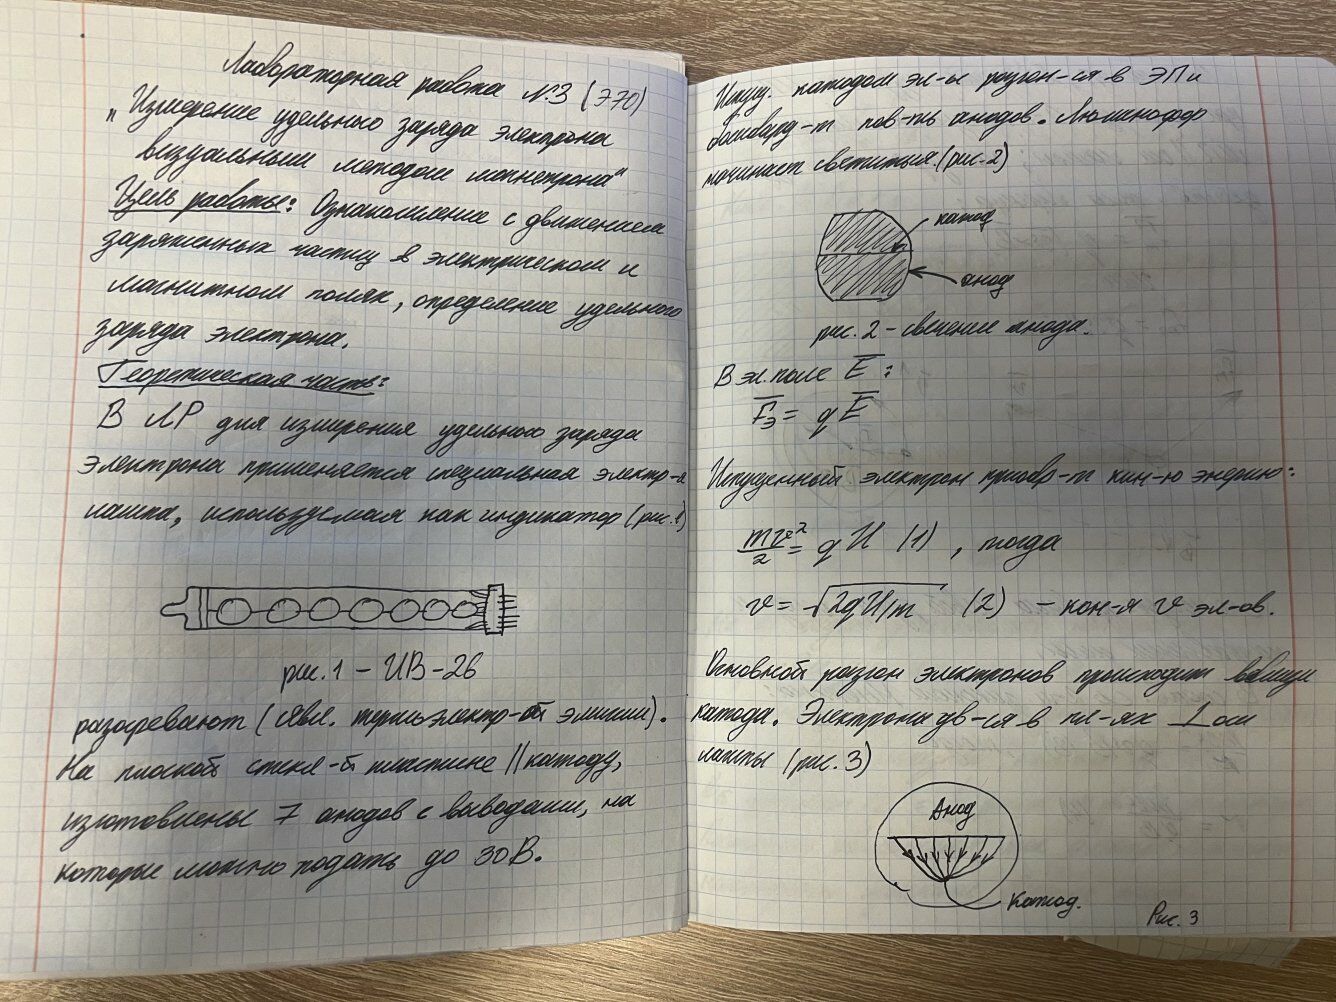 Лабораторная работа №3 (Э70)
"Измерение удельного заряда электрона
визуальным методом магнетрона"
Цель работы: Ознакомление с движением
заряженных частиц в электрическом и
магнитном полях, определение удельного
заряда электрона.
Теоретическая часть:
В ЛР для измерения удельного заряда
электрона применяется специальная электр-я
лампа, используемая как индикатор (рис.1)
рис.1 - ИВ-26
разогревают (явл. термоэлектр-ой эмиссии).
На плоской стекл-й пластине || катоду,
изготовлены 7 анодов с выводами, на
которые можно подать до 30В.
Испущ. катодом эл-ы разгон-ся в ЭП и
бомбард-т пов-ть анодов. Люминофор
начинает светиться.(рис.2)
катод
анод
рис.2 - свечение анода.
В эл.поле E̅:
F̅э = qE̅
Испущенный электрон приобр-т кин-ю энергию:
mv²/2 = qU (1) , тогда
v = √2qU/m (2) - кон-я v эл-ов.
Основной разгон электронов происходит вблизи
катода. Электрона дв-ся в пл-ях ⊥ оси
лампы (рис.3)
Анод
Катод.
Рис. 3